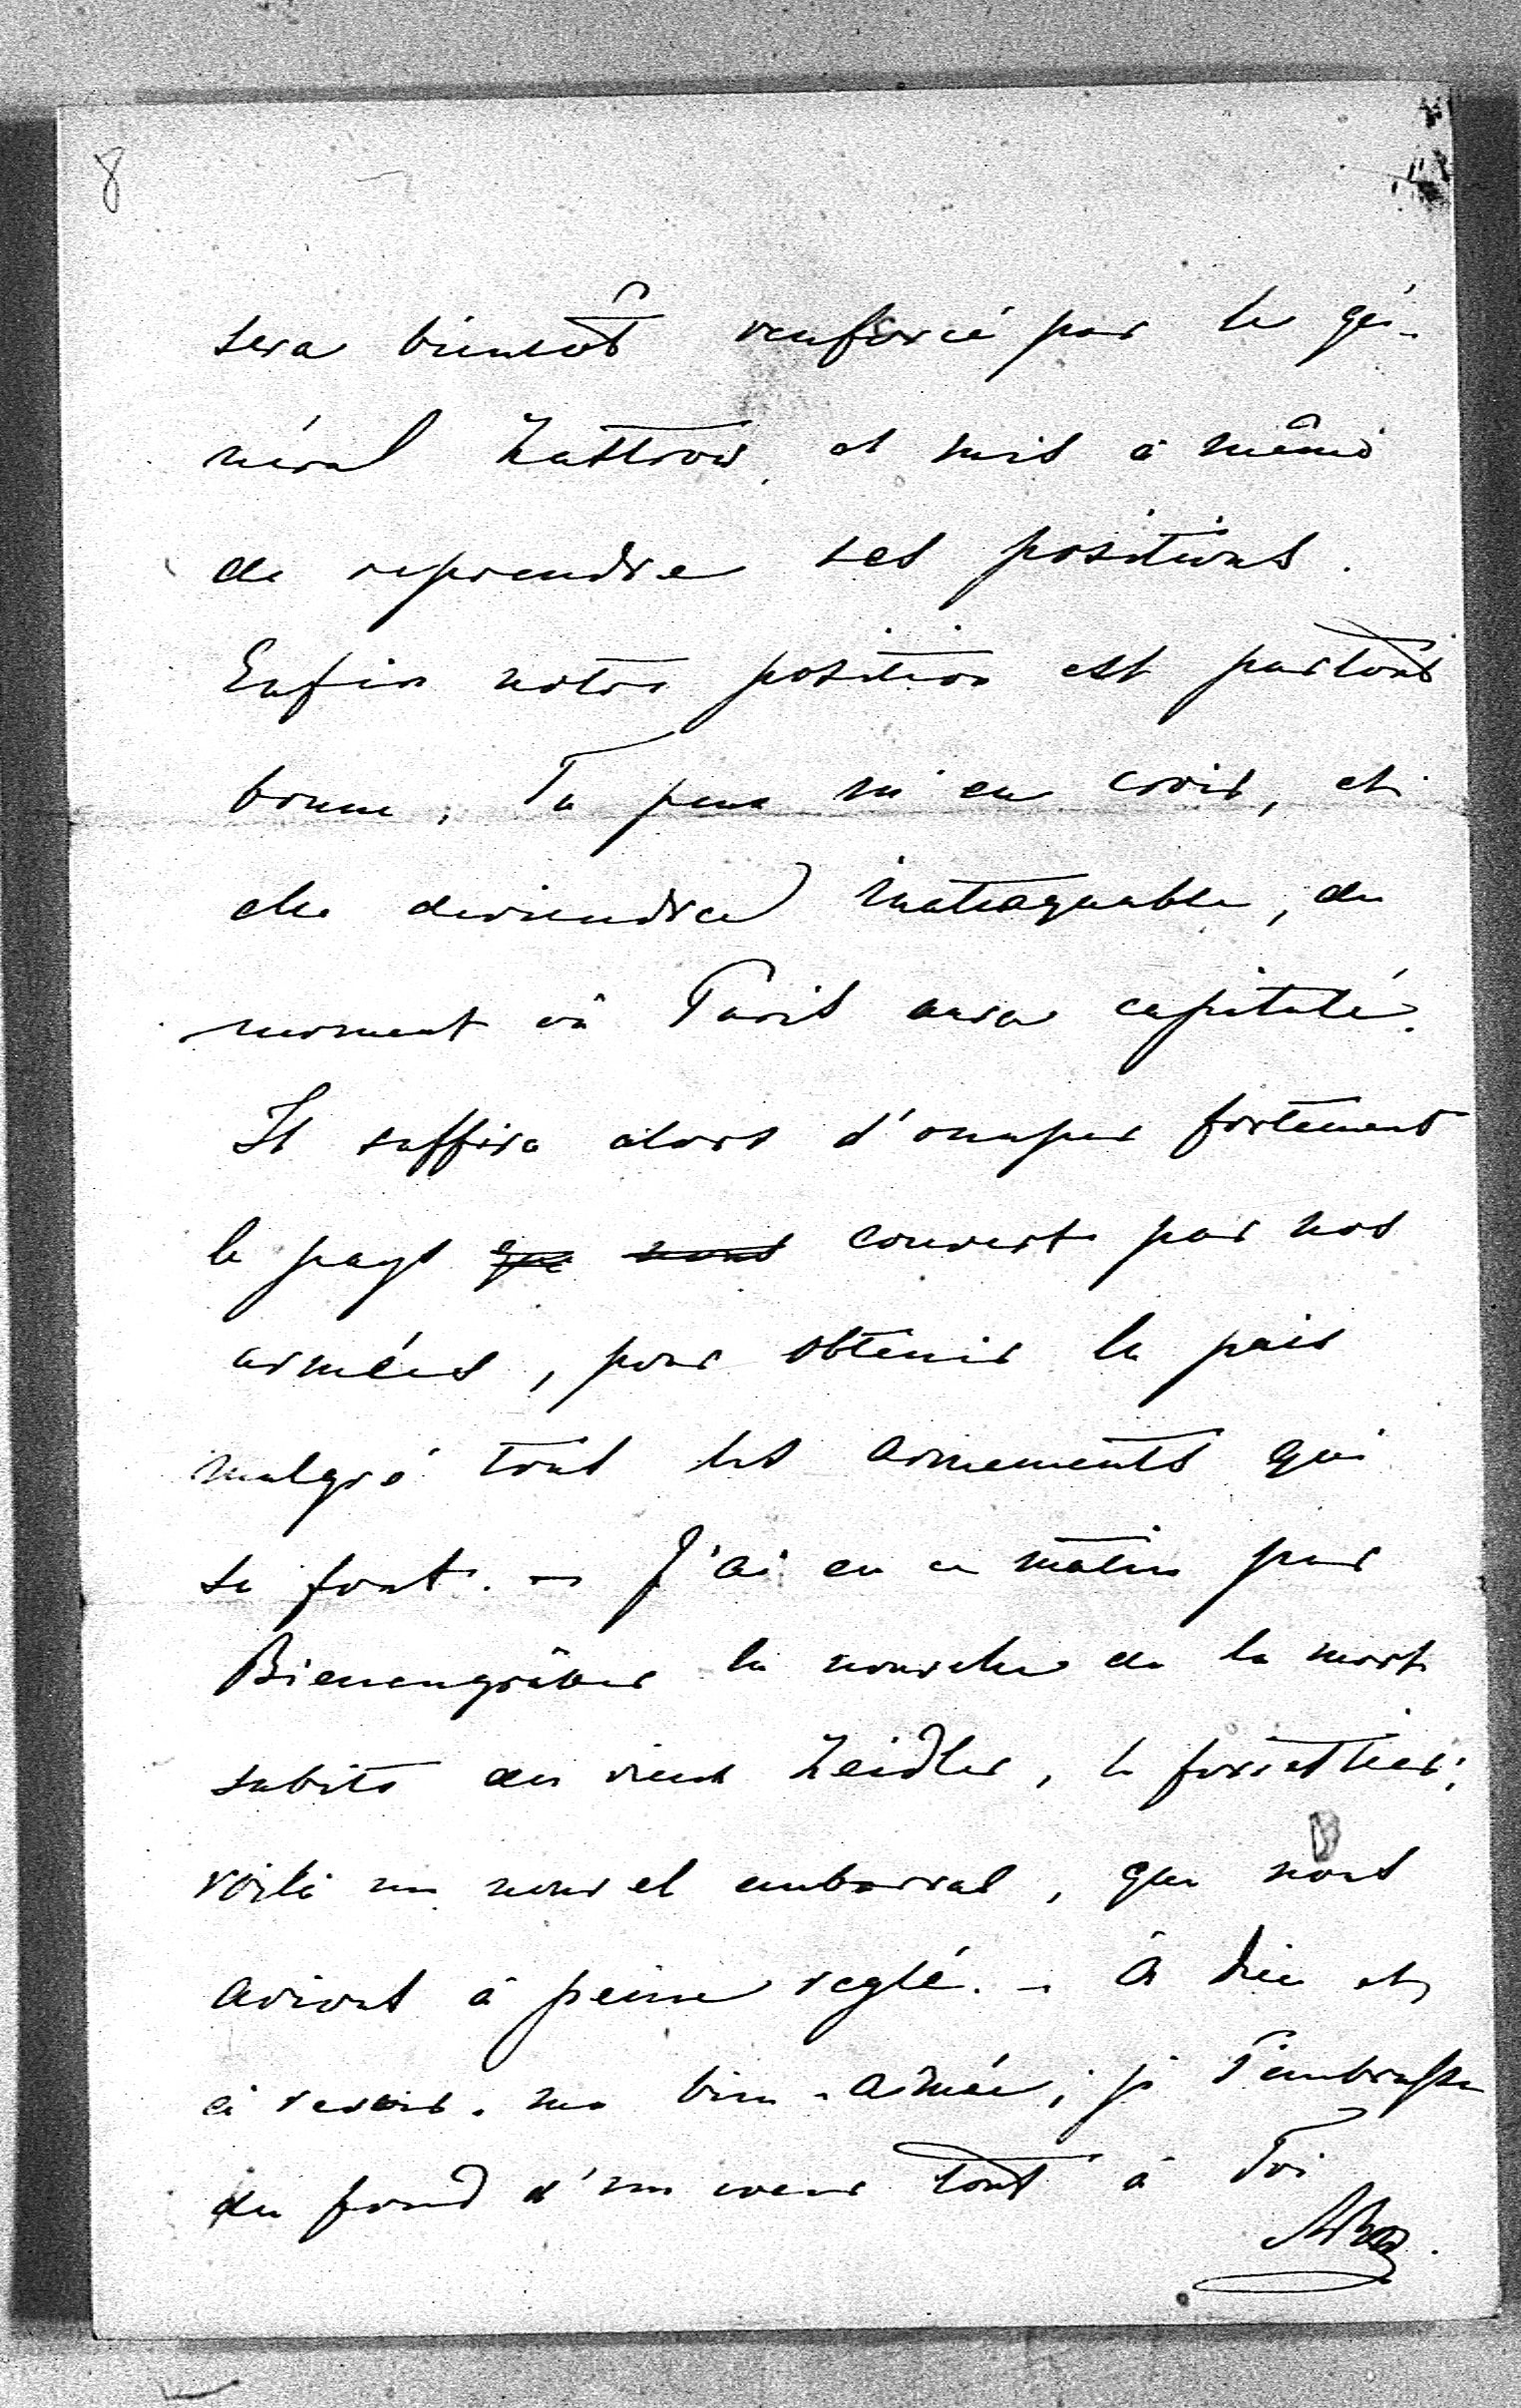 8
sera bientôt renforcé par le gé-
néral Zastrow et mis à même
de reprendre ses positions.
Enfin notre position est partout
bonne, Tu peux m'en croire, et
elle deviendra inattaquable, du
moment où Paris aura capitulé.
Il suffira alors d'occuper fortement
le pays que nous couvert par nos
armées, pour obtenir la paix
malgré tous les armements qui
se font. - J'ai eu ce matin par
Bienengräber la nouvelle de la mort
subite du vieux Zeidler, le forestier;
voilà un nouvel embarras, que nous
avions à peine reglé. - à Dieu et
à revoir. ma bien-aimée; je T'embrasse
du fond d'un coeur tout à Toi